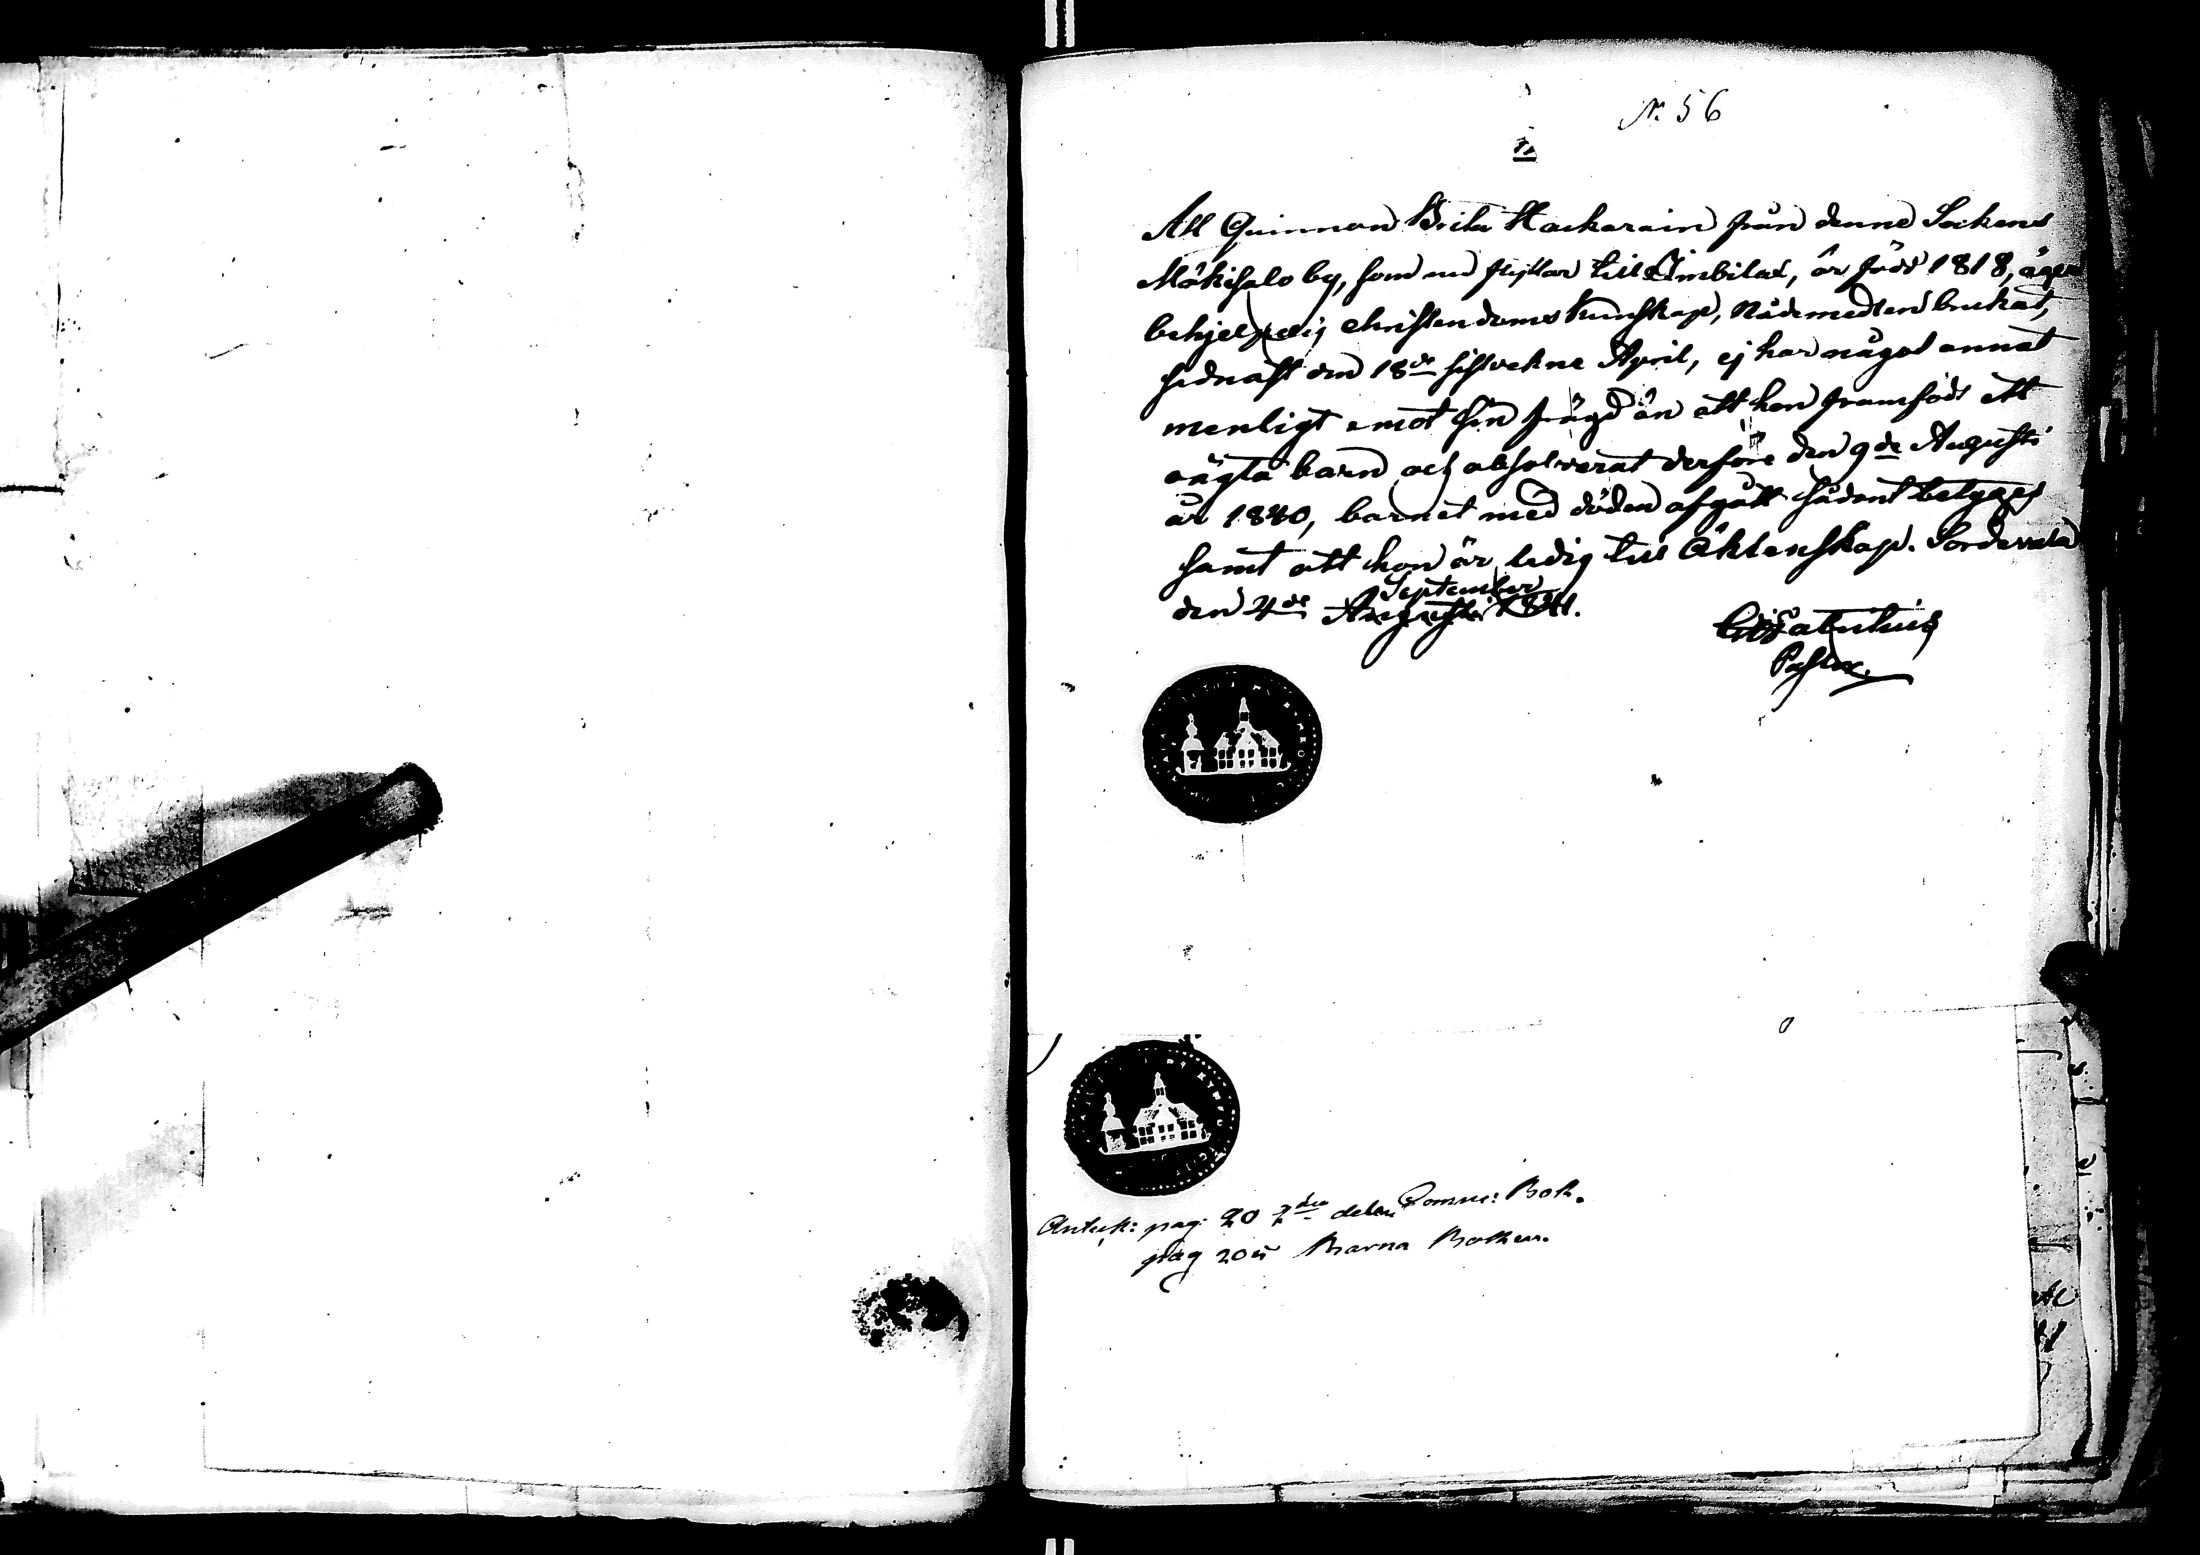 N: 56
1,
Att Quinnan Brita Hackarain från denne Sockens
Mökisalo by, som nu flyttar till Imbilax, är född 1818, äger
behjelpelig christendoms kunskap, Nådemedlen brukat,
sednast den 18de sistvekne April, ej har något annat
menligt emot sin frägd än att hon framfödt ett
oägta barn och absolverat derföre den 9de Augusti
år 1840, barnet med döden afgått sådant betygas
samt att hon är ledig till Äktenskap. Sordavala
den 4de Augusti September 1841.
Pastor.
Anteck: pag: 20 2dra delen Comm: Bok.
pag 205 Barna Boken.